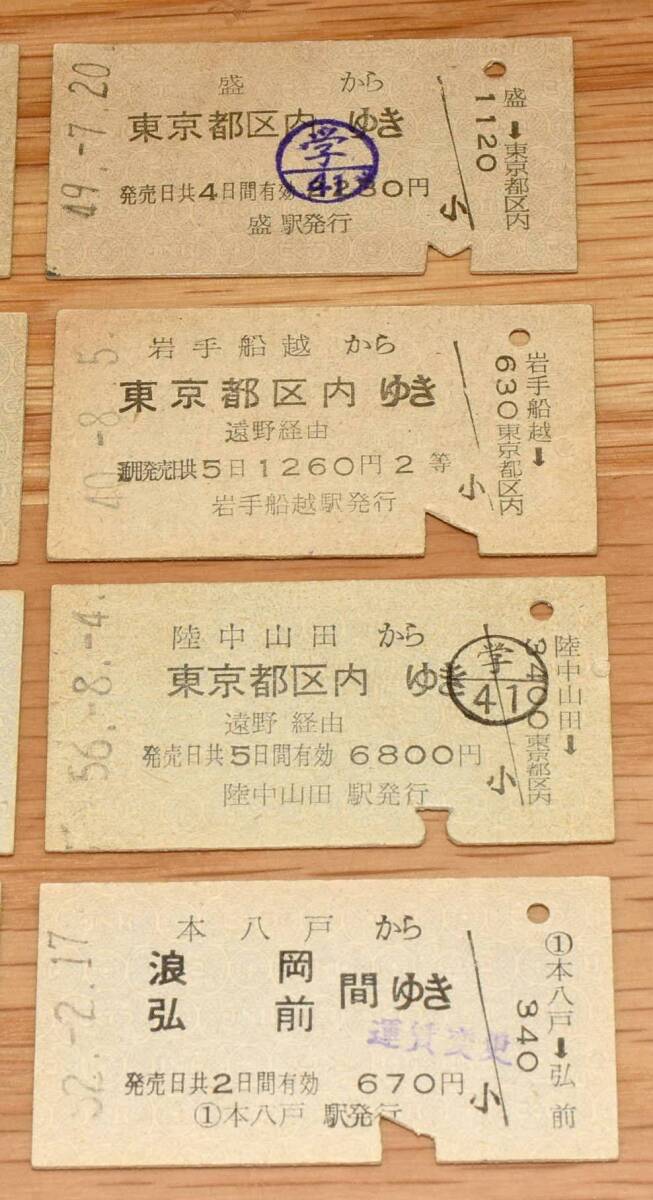 49.-7.20
盛 から
東京都区内 ゆき
学
41
発売日共4日間有効 230円
盛 駅発行
小
盛➡東京都区内
1120
40.-8.-5.
岩手船越 から
東京都区内 ゆき
遠野経由
通用発売日共5日1260円2等
岩手船越駅発行
小
岩手船越➡
630東京都区内
56.-8.-4.
陸中山田 から
東京都区内 ゆき
遠野 経由
発売日共5日間有効 6800円
陸中山田 駅発行
学
41
小
陸中山田➡
3400東京都区内
52.-2.17
本八戸 から
浪岡
弘前
間 ゆき
運賃変更
発売日共2日間有効 670円
①本八戸 駅発行
小
①本八戸➡弘前
340